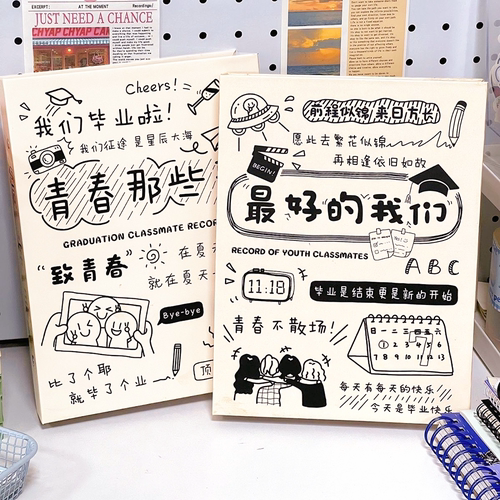 EXCERPT: AT THE MOMENT
JUST NEED A CHANCE
CHYAP CHYAP
Recordings
Cheers!
我们毕业啦!
我们征途 是星辰大海
青春那些
GRADUATION CLASSMATE RECOR
"致青春"
在夏
就在夏天
Bye-bye
比了个耶
就毕了个业
顶
前程似锦 来日方长
愿此去繁花似锦
再相逢依旧如故
BEGIN!
最好的我们
RECORD OF YOUTH CLASSMATES
A B C
11:18
毕业是结束更是新的开始
青春不散场!
日 一 二 三 四 五 六
1 2 3 4 5 6
7 8 9 10 11 12 13
7
每天有每天的快乐
今天是毕业快乐